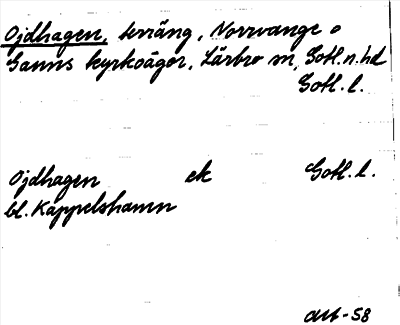 Ojdhagen, terräng, Norrvange o
Ganns kyrkoäger, Lärbro sn, Gotl. n. hd
Gotl. l.
Ojdhagen ek Gotl. l.
bl. Kappelshamn
-58